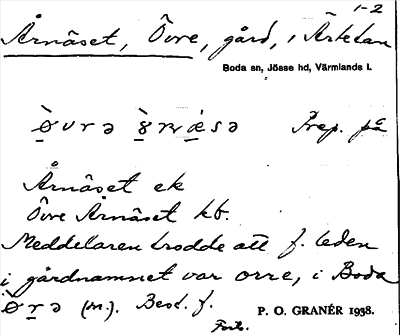 1-2
Årnäset, Övre, gård, i Ärtetan
Boda sn, Jösse hd, Värmlands l.
Prep. på
Årnäset ek
Övre Årnäset kb.
Meddelaren trodde att f. leden
i gårdnamnet var orre, i Boda
(m.). Best. f.
P. O. GRANÉR 1938.
Forts.